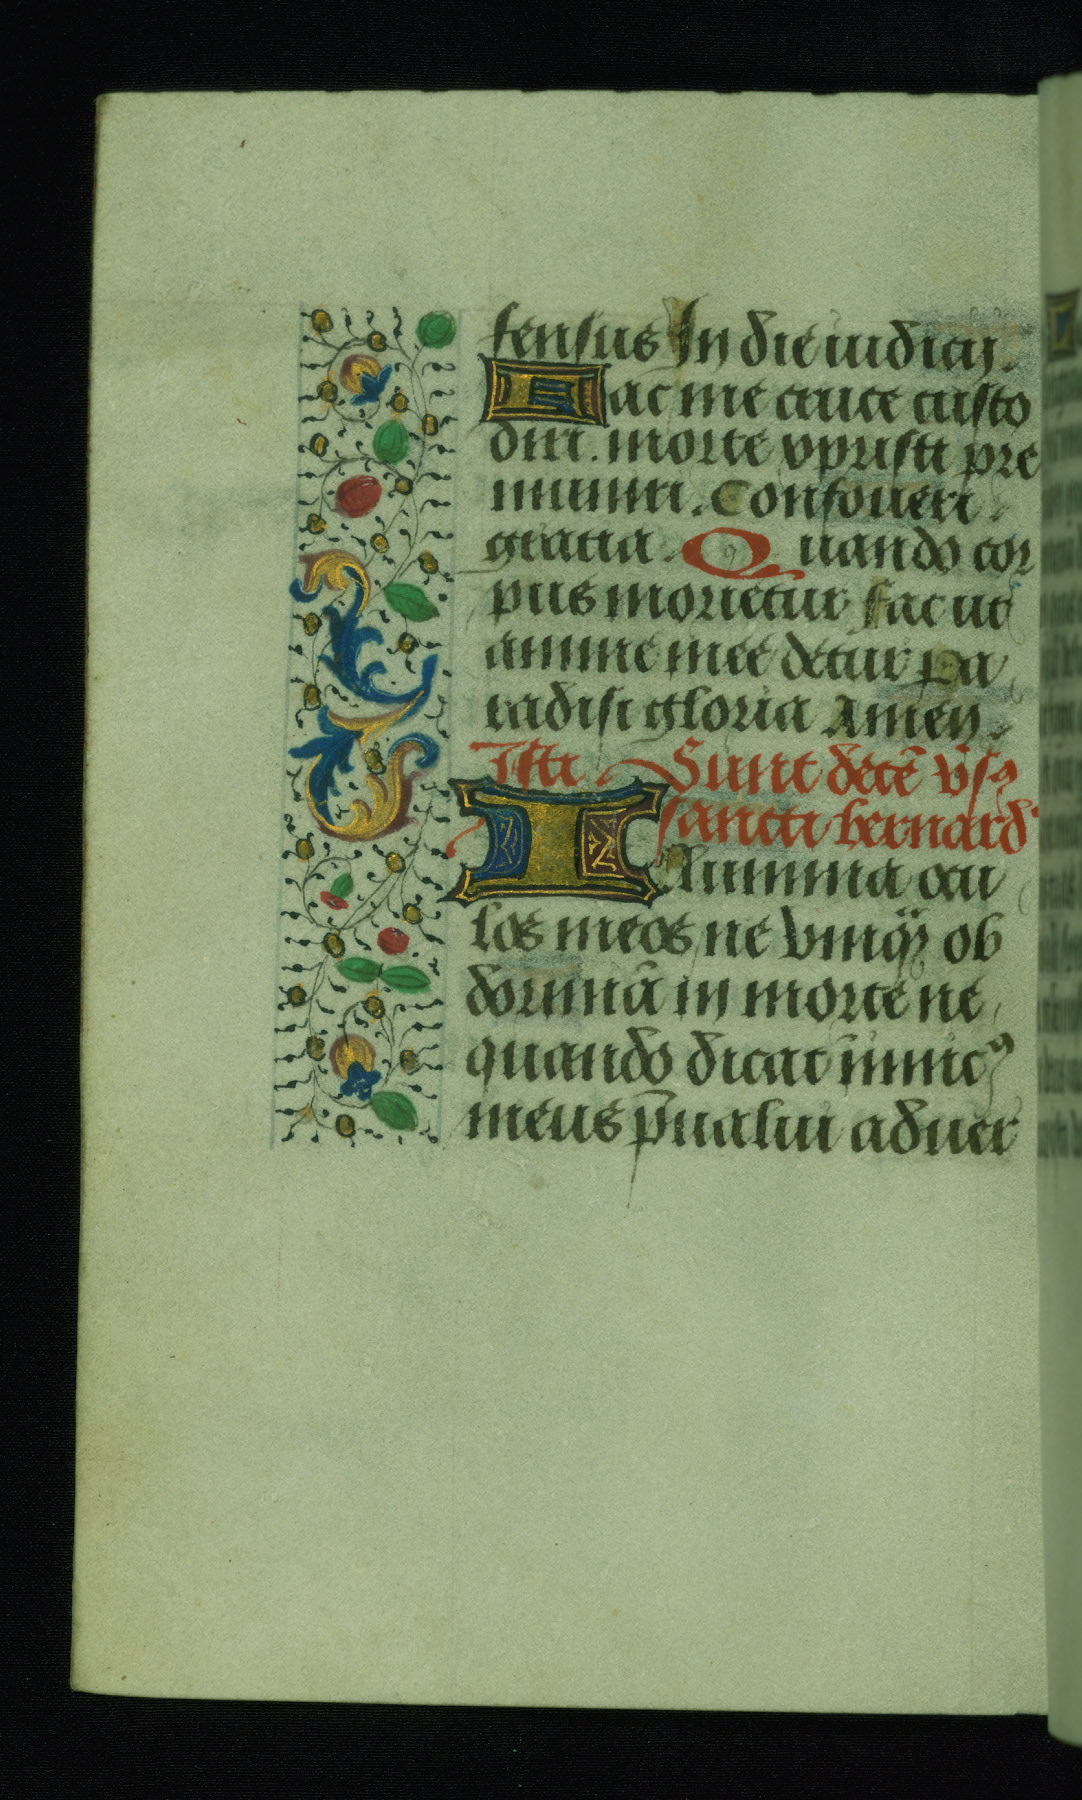 fensus In die iudicij.
Fac me cruce custo
diri. morte xpristi pre
muniri. Confoueri
gratia. Quando cor
pus morietur fac ut
anime mee detur pa
radisi gloria Amen.
Isti Sunt decẽ v̉sꝯ
sancti bernard'
Illumina ocu
los meos ne vmq̃ꝫ ob
dormiã in morte ne
quando dicat inimicꝰ
meus p̃ualui aduer